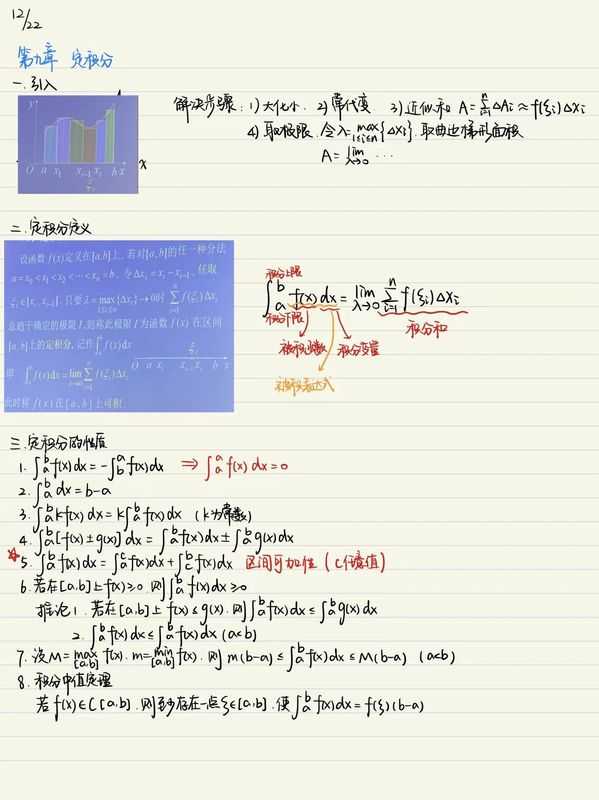 12/22
第九章 定积分
一.引入
y
O a x₁ xᵢ₋₁ xᵢ b x
ξᵢ
x
解决步骤: 1) 大化小 2) 常代变 3) 近似和 A=∑ᵢ₌₁ⁿ ΔAᵢ≈f(ξᵢ)Δxᵢ
4) 取极限. 令λ=max_{1≤i≤n}{Δxᵢ}. 取曲边梯形面积
A=lim_{λ→0} ⋯
二.定积分定义
设函数 f(x)定义在[a,b]上, 若对[a,b]的任一种分法
a=x₀<x₁<x₂<⋯<xₙ=b, 令Δxᵢ=xᵢ-xᵢ₋₁, 任取
ξᵢ∈[xᵢ, xᵢ₋₁], 只要λ=max_{1≤i≤n}{Δxᵢ}→0时 ∑ᵢ₌₁ⁿ f(ξᵢ)Δxᵢ
总趋于确定的极限 I, 则称此极限 I 为函数 f(x) 在区间
[a,b]上的定积分, 记作∫ₐᵇ f(x)dx
ξᵢ
O a x₁ xᵢ₋₁ xᵢ b x
即 ∫ₐᵇ f(x)dx=lim_{λ→0} ∑ᵢ₌₁ⁿ f(ξᵢ)Δxᵢ
此时称 f(x) 在 [a, b] 上可积.
积分上限
∫ₐᵇ f(x)dx=lim_{λ→0} ∑ᵢ₌₁ⁿ f(ξᵢ)Δxᵢ
积分下限
积分和
被积函数 积分变量
被积表达式
三.定积分的性质
1. ∫ₐᵇ f(x)dx=-∫_b^a f(x)dx ⇒∫ₐᵃ f(x)dx=0
2. ∫ₐᵇ dx=b-a
3. ∫ₐᵇ kf(x)dx=k∫ₐᵇ f(x)dx (k为常数)
4. ∫ₐᵇ[f(x)±g(x)]dx=∫ₐᵇ f(x)dx±∫ₐᵇ g(x)dx
☆5. ∫ₐᵇ f(x)dx=∫ₐᶜ f(x)dx+∫_c^b f(x)dx 区间可加性 (C任意值)
6.若在[a.b]上f(x)≥0.则∫ₐᵇ f(x)dx≥0
推论1.若在[a.b]上 f(x)≤g(x).则∫ₐᵇ f(x)dx≤∫ₐᵇ g(x)dx
2. ∫ₐᵇ f(x)dx≤∫ₐᵇ f(x)dx (a<b)
7. 设M=max_{[a.b]} f(x). m=min_{[a.b]} f(x). 则 m(b-a)≤∫ₐᵇ f(x)dx≤M(b-a) (a<b)
8.积分中值定理
若f(x)∈C[a.b].则至少存在一点ξ∈[a.b].使∫ₐᵇ f(x)dx=f(ξ)(b-a)